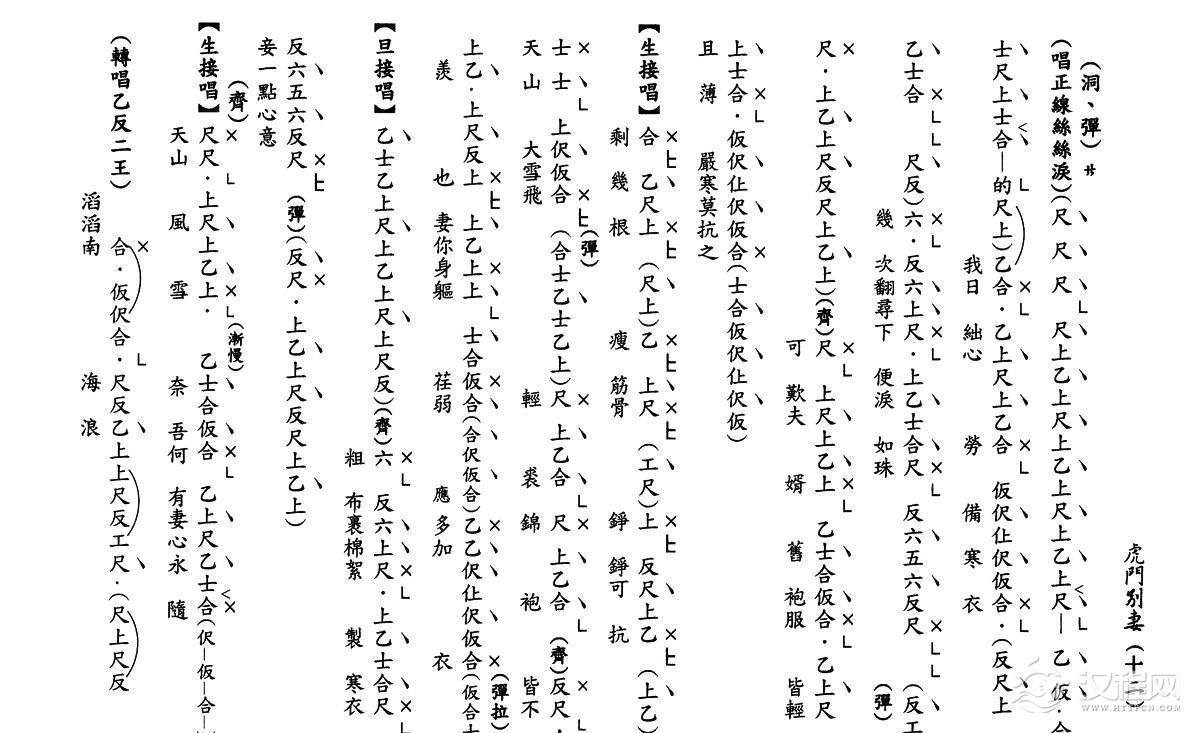 虎門別妻（十二）
（洞、彈）サ
（唱正線絲絲淚）（尺 尺 尺 尺上乙上尺上乙上尺上乙上尺—乙仮·合
士尺上士合—的尺上）乙合·乙上尺上乙合 仮伬仩伬仮合·（反尺上
我日 絀心 勞 備 寒 衣
乙士合 尺反）六·反六上尺·上乙士合尺 反六五六反尺 （彈）（反工
幾 次翻尋下 便淚 如珠
尺·上乙上尺反尺上乙上）（齊）尺 上尺上乙上 乙士合仮合·乙上尺
可 歎夫 婿 舊 袍服 皆輕
上士合·仮伬仩伬仮合（士合仮伬仩伬仮）
且 薄 嚴寒莫抗之
【生接唱】合 乙尺上（尺上）乙 上尺（工尺）上 反尺上乙（上乙）
剩 幾 根 瘦 筋骨 錚 錚可 抗
士 士 上伬仮合（彈）（合士乙士乙上）尺 上乙合 尺 上乙合（齊）反尺·
天 山 大雪飛 輕 裘 錦 袍 皆不
上乙·上尺反上 上乙上上 士合仮合（合伬仮合）乙乙伬仩伬仮合（彈拉）（仮合士
羨 也 妻你身軀 荏弱 應多加 衣
【旦接唱】乙士乙上尺上乙上尺上尺反）（齊）六 反六上尺·上乙士合尺
粗 布裹棉絮 製 寒衣
反六五六反尺 （彈）（反尺·上乙上尺反尺上乙上）
妾一點心意
（齊）
【生接唱】尺尺·上尺上乙上·（漸慢）乙士合仮合 乙上尺乙士合（伬—仮—合—
天山 風 雪 奈 吾何 有妻心永 隨
（轉唱乙反二王） 合·仮伬合·尺反乙上上尺反工尺·（尺上尺反
滔滔南 海 浪
汉程网
WWW.HTTPCN.COM